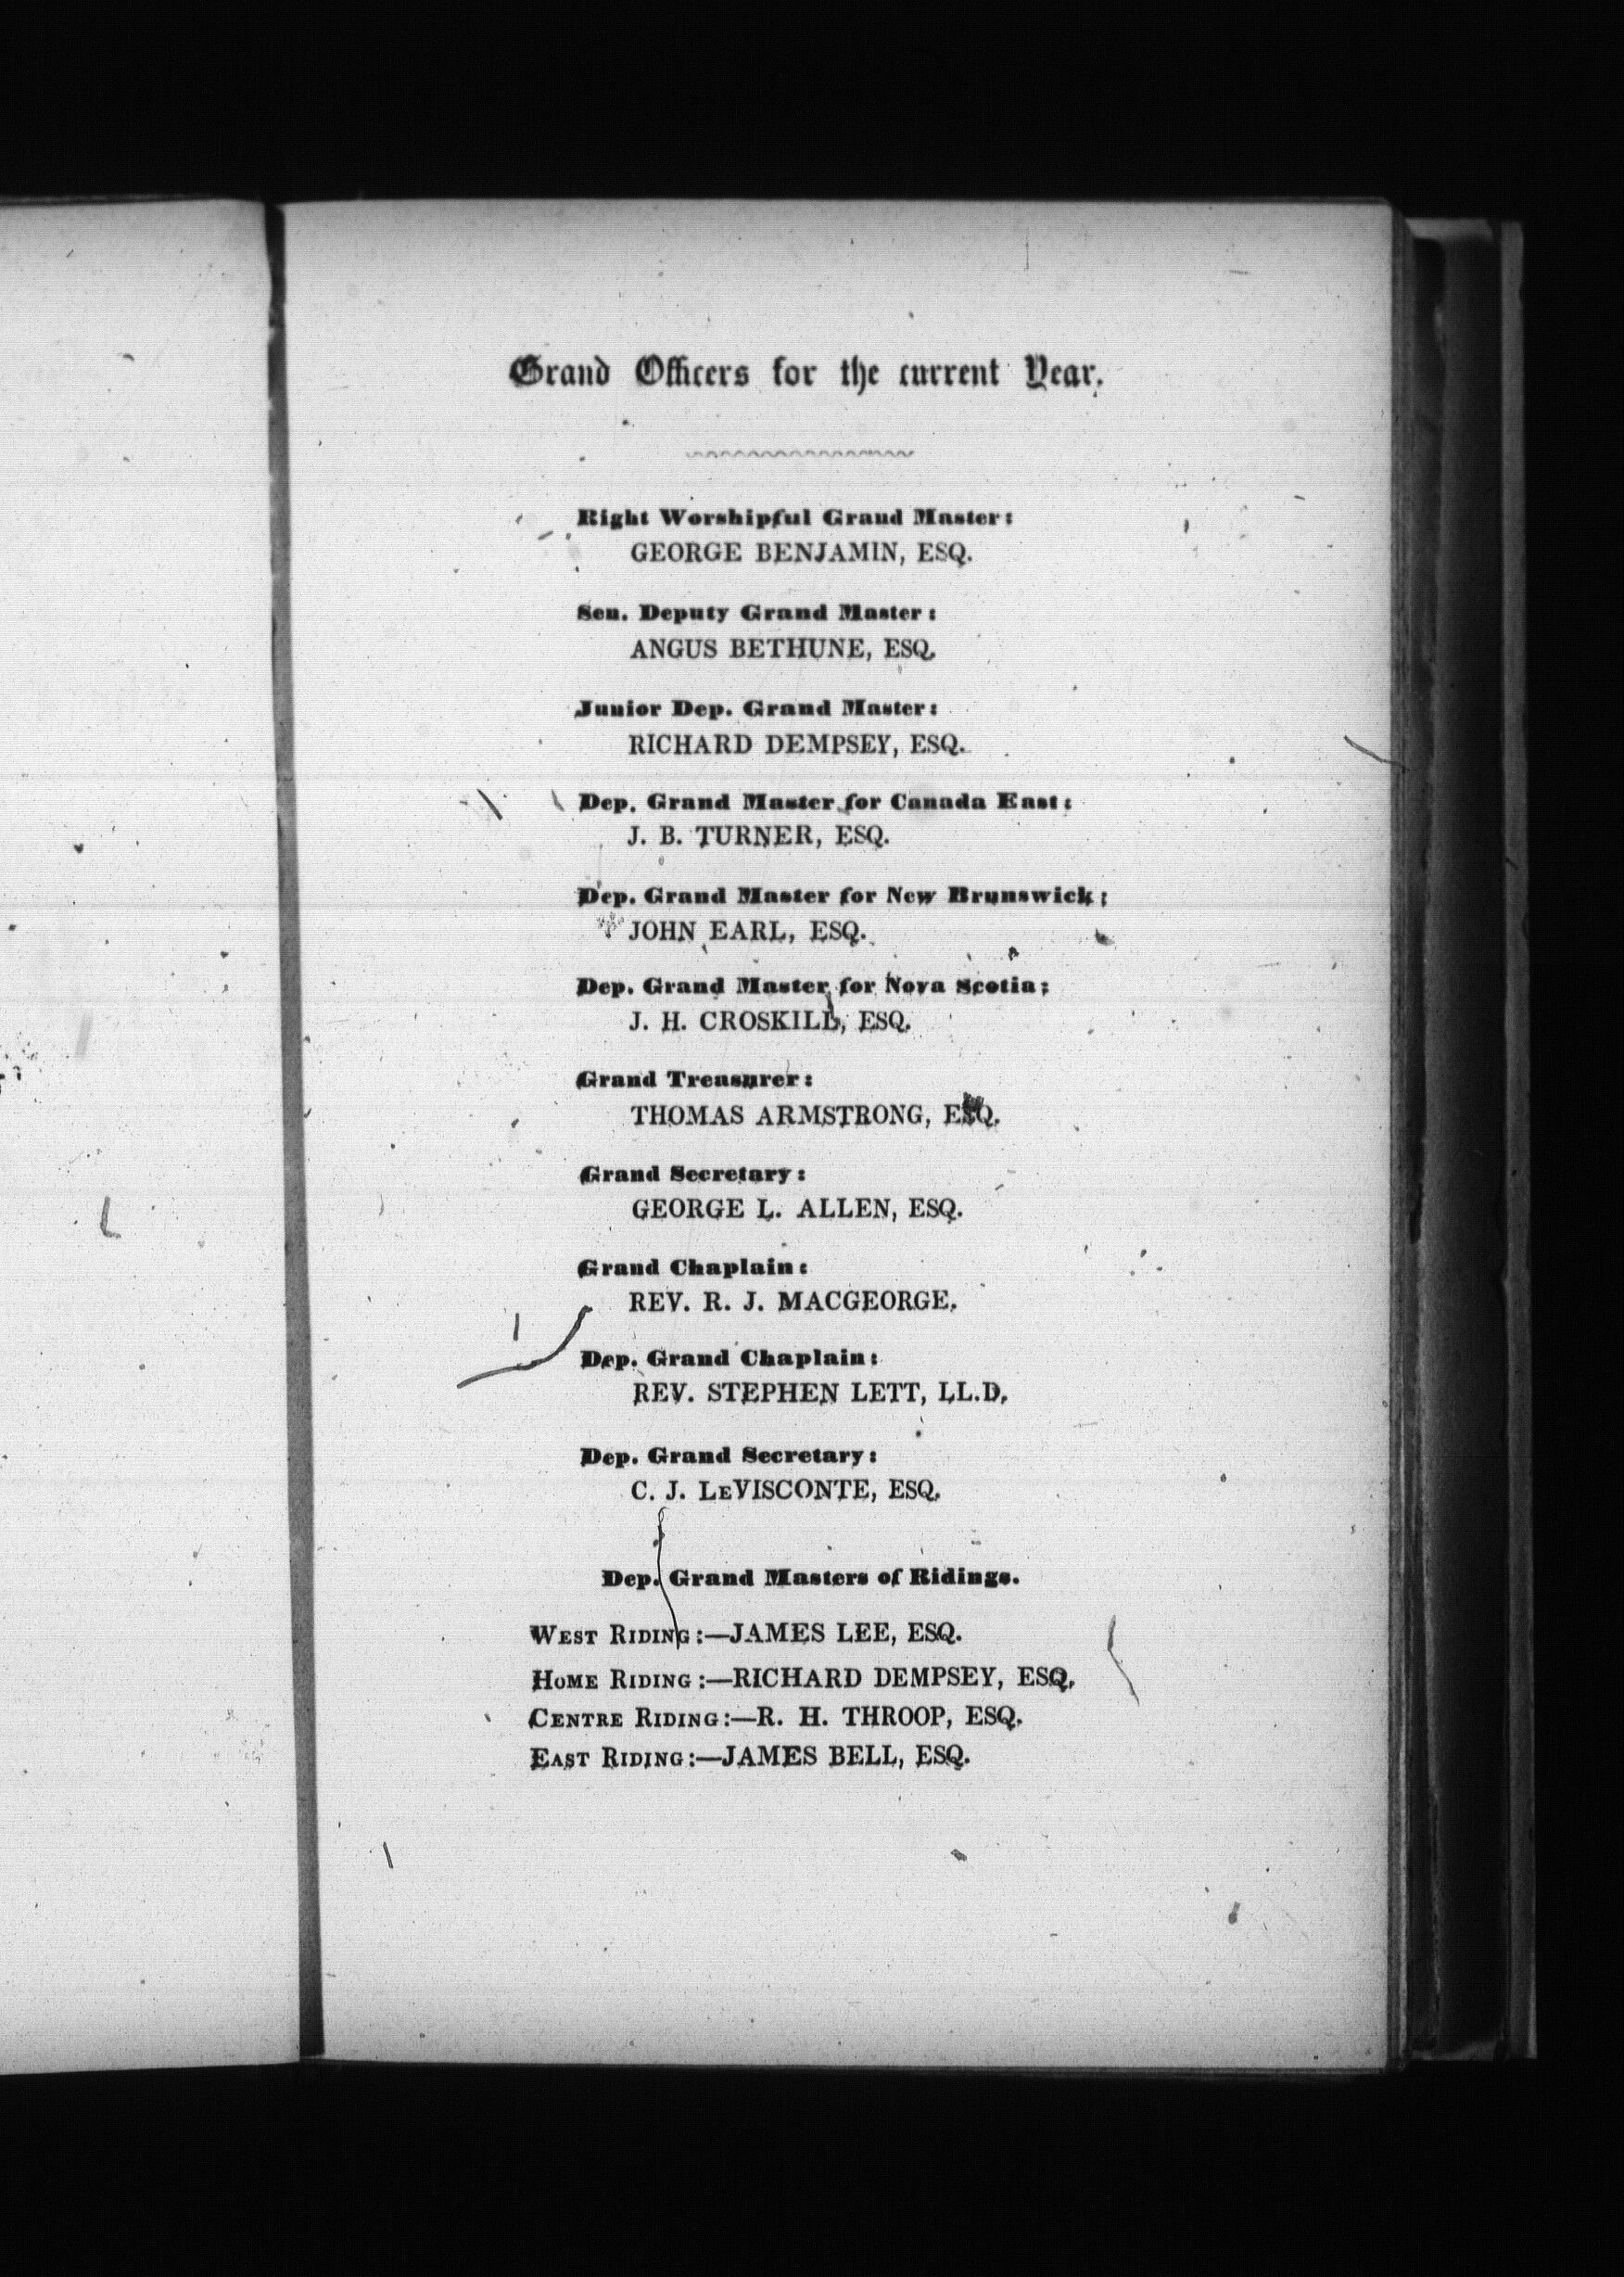 Grand Officers for the current Year.
Right Worshipful Grand Master:
GEORGE BENJAMIN, ESQ.
Sen. Deputy Grand Master:
ANGUS BETHUNE, ESQ.
Junior Dep. Grand Master:
RICHARD DEMPSEY, ESQ.
Dep. Grand Master for Canada East:
J. B. TURNER, ESQ.
Dep. Grand Master for New Brunswick:
JOHN EARL, ESQ.
Dep. Grand Master for Nova Scotia:
J. H. CROSKILL, ESQ.
Grand Treasurer:
THOMAS ARMSTRONG, ESQ.
Grand Secretary:
GEORGE L. ALLEN, ESQ.
Grand Chaplain:
REV. R. J. MACGEORGE.
Dep. Grand Chaplain:
REV. STEPHEN LETT, LL.D.
Dep. Grand Secretary:
C. J. LEVISCONTE, ESQ.
Dep. Grand Masters of Ridings.
WEST RIDING:—JAMES LEE, ESQ.
HOME RIDING:—RICHARD DEMPSEY, ESQ.
CENTRE RIDING:—R. H. THROOP, ESQ.
EAST RIDING:—JAMES BELL, ESQ.